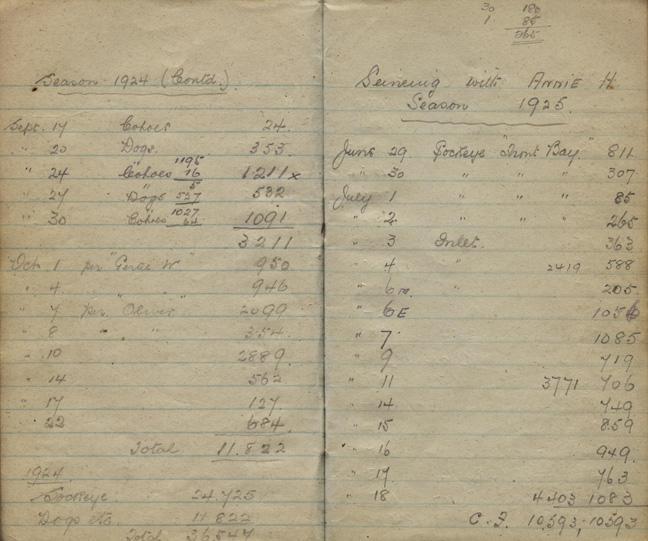 Season 1924 (Contd.)
Sept. 17 Cohoes 24.
" 20 Dogs. 353.
1195
" 24 Cohoes 16 1211x
5
" 27 Dogs 527 532
1027
" 30 Cohoes 64 1091
3211
Oct. 1 per " W" 950
" 4 " " 946
" 7 per "Oliver" 2099
" 8 " " 354.
" 10 2889.
" 14 562
" 17 127
" 22 684.
Total 11.822
1924.
Sockeye. 24.725
Dogs etc. 11822
Total 36547
30 180
1 85
265
Seineing with ANNIE H.
Season 1925.
June 29 Sockeye "Front Bay." 811
" 30 " " " 307
July 1 " " " 85
" 2 " " " 265
" 3 Inlet. 363
" 4 " 2419 588
" 6 M. " 205
" 6 E 1056
" 7 1085
" 9 719
" 11 3771 706
" 14 749
" 15 859
" 16 949.
" 17 763
" 18 4403 1083
C.F. 10.593; 10593